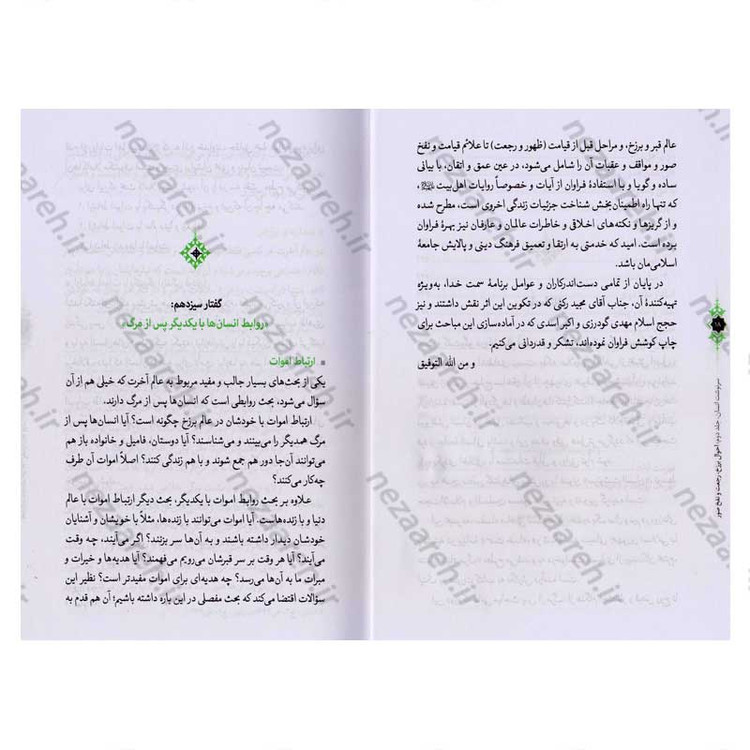 عالم قبر و برزخ، و مراحل قبل از قیامت (ظهور و رجعت) تا علائم قیامت و نفخ
صور و مواقف و عقبات آن را شامل می‌شود، در عین عمق و اتقان، با بیانی
ساده و گویا و با استفادهٔ فراوان از آیات و خصوصاً روایات اهل‌بیت
که تنها راه اطمینان‌بخش شناخت جزئیات زندگی اخروی است، مطرح شده
و از گریزها و نکته‌های اخلاقی و خاطرات عالمان و عارفان نیز بهرهٔ فراوان
برده است. امید که خدمتی به ارتقا و تعمیق فرهنگ دینی و پالایش جامعهٔ
اسلامی‌مان باشد.
در پایان از تمامی دست‌اندرکاران و عوامل برنامهٔ سمت خدا، به‌ویژه
تهیه‌کنندهٔ آن، جناب آقای مجید رکنی که در تکوین این اثر نقش داشتند و نیز
حجج اسلام مهدی گودرزی و اکبر اسدی که در آماده‌سازی این مباحث برای
چاپ کوشش فراوان نموده‌اند، تشکر و قدردانی می‌کنیم.
و من الله التوفیق
سرنوشت انسان، جلد دوم: احوال برزخ، رجعت و نفخ صور
گفتار سیزدهم:
«روابط انسان‌ها با یکدیگر پس از مرگ»
ارتباط اموات
یکی از بحث‌های بسیار جالب و مفید مربوط به عالم آخرت که خیلی هم از آن
سؤال می‌شود، بحث روابطی است که انسان‌ها پس از مرگ دارند.
ارتباط اموات با خودشان در عالم برزخ چگونه است؟ آیا انسان‌ها پس از
مرگ همدیگر را می‌بینند و می‌شناسند؟ آیا دوستان، فامیل و خانواده باز هم
می‌توانند آن‌جا دور هم جمع شوند و با هم زندگی کنند؟ اصلاً اموات آن طرف
چه‌کار می‌کنند؟
علاوه بر بحث روابط اموات با یکدیگر، بحث دیگر ارتباط اموات با عالم
دنیا و با زنده‌هاست. آیا اموات می‌توانند با زنده‌ها، مثلاً با خویشان و آشنایان
خودشان دیدار داشته باشند و به آن‌ها سر بزنند؟ اگر می‌آیند، چه وقت
می‌آیند؟ آیا هر وقت بر سر قبرشان می‌رویم می‌فهمند؟ آیا هدیه‌ها و خیرات و
مبرات ما به آن‌ها می‌رسد؟ چه هدیه‌ای برای اموات مفیدتر است؟ نظیر این
سؤالات اقتضا می‌کند که بحث مفصلی در این باره داشته باشیم؛ آن هم قدم به
nezaareh.ir
nezaareh.ir
nezaareh.ir
nezaareh.ir
nezaareh.ir
nezaareh.ir